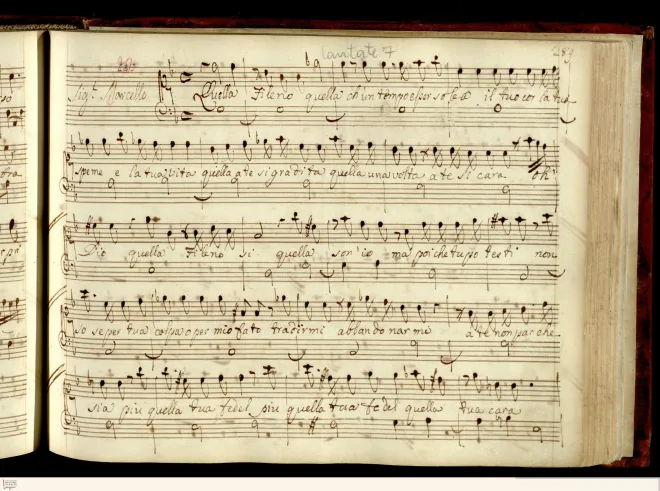 Cantate 7
289
Sig.r Marcello Quella Fileno quella ch'un tempo il tuo cor la tua
speme e la tua vita quella a te si gradita quella una volta a te si cara oh
Dio quella Fileno si quella son io ma poi che tu potesti non
so se per tua colpa o per mio fato tradirmi abbandonarmi a te non par che
sia piu quella tua fedel piu quella tua fedel quella tua cara